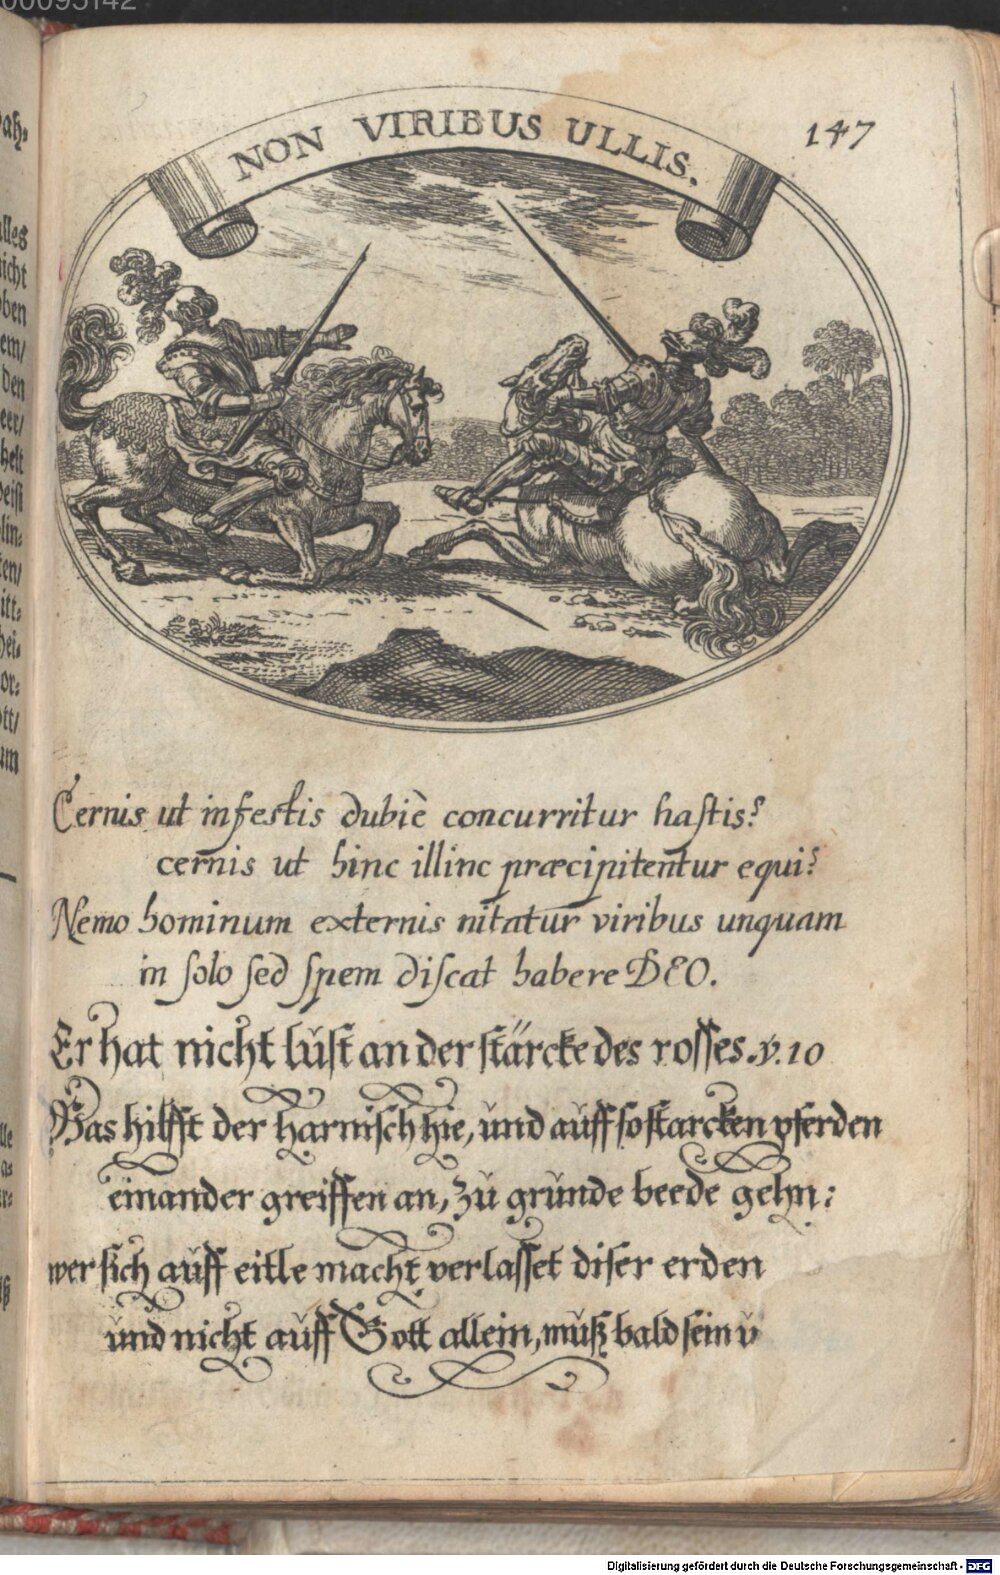 00095142
NON VIRIBUS ULLIS.
147
Cernis ut infestis dubiè concurritur hastis?
cernis ut hinc illinc præcipitentur equi?
Nemo hominum externis nitatur viribus unquam
in solo sed spem discat habere DEO.
Er hat nicht lust an der stärcke des rosses. v. 10
Was hilfft der harnisch hie, und auff so starcken pferden
einander greiffen an, zu grunde beede gehn:
wer sich auff eitle macht verlasset diser erden
und nicht auff Gott allein, muß bald sein
Digitalisierung gefördert durch die Deutsche Forschungsgemeinschaft - DFG